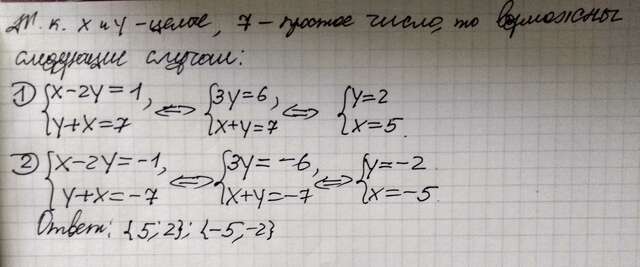 Т. к. x и y - целое, 7 - простое число, то возможны
следующие случаи:
1) { x-2y=1, <=> { 3y=6, <=> { y=2
y+x=7 x+y=7 x=5.
2) { x-2y=-1, <=> { 3y=-6, <=> { y=-2
y+x=-7 x+y=-7 x=-5.
Ответ: {5; 2}; {-5,-2}